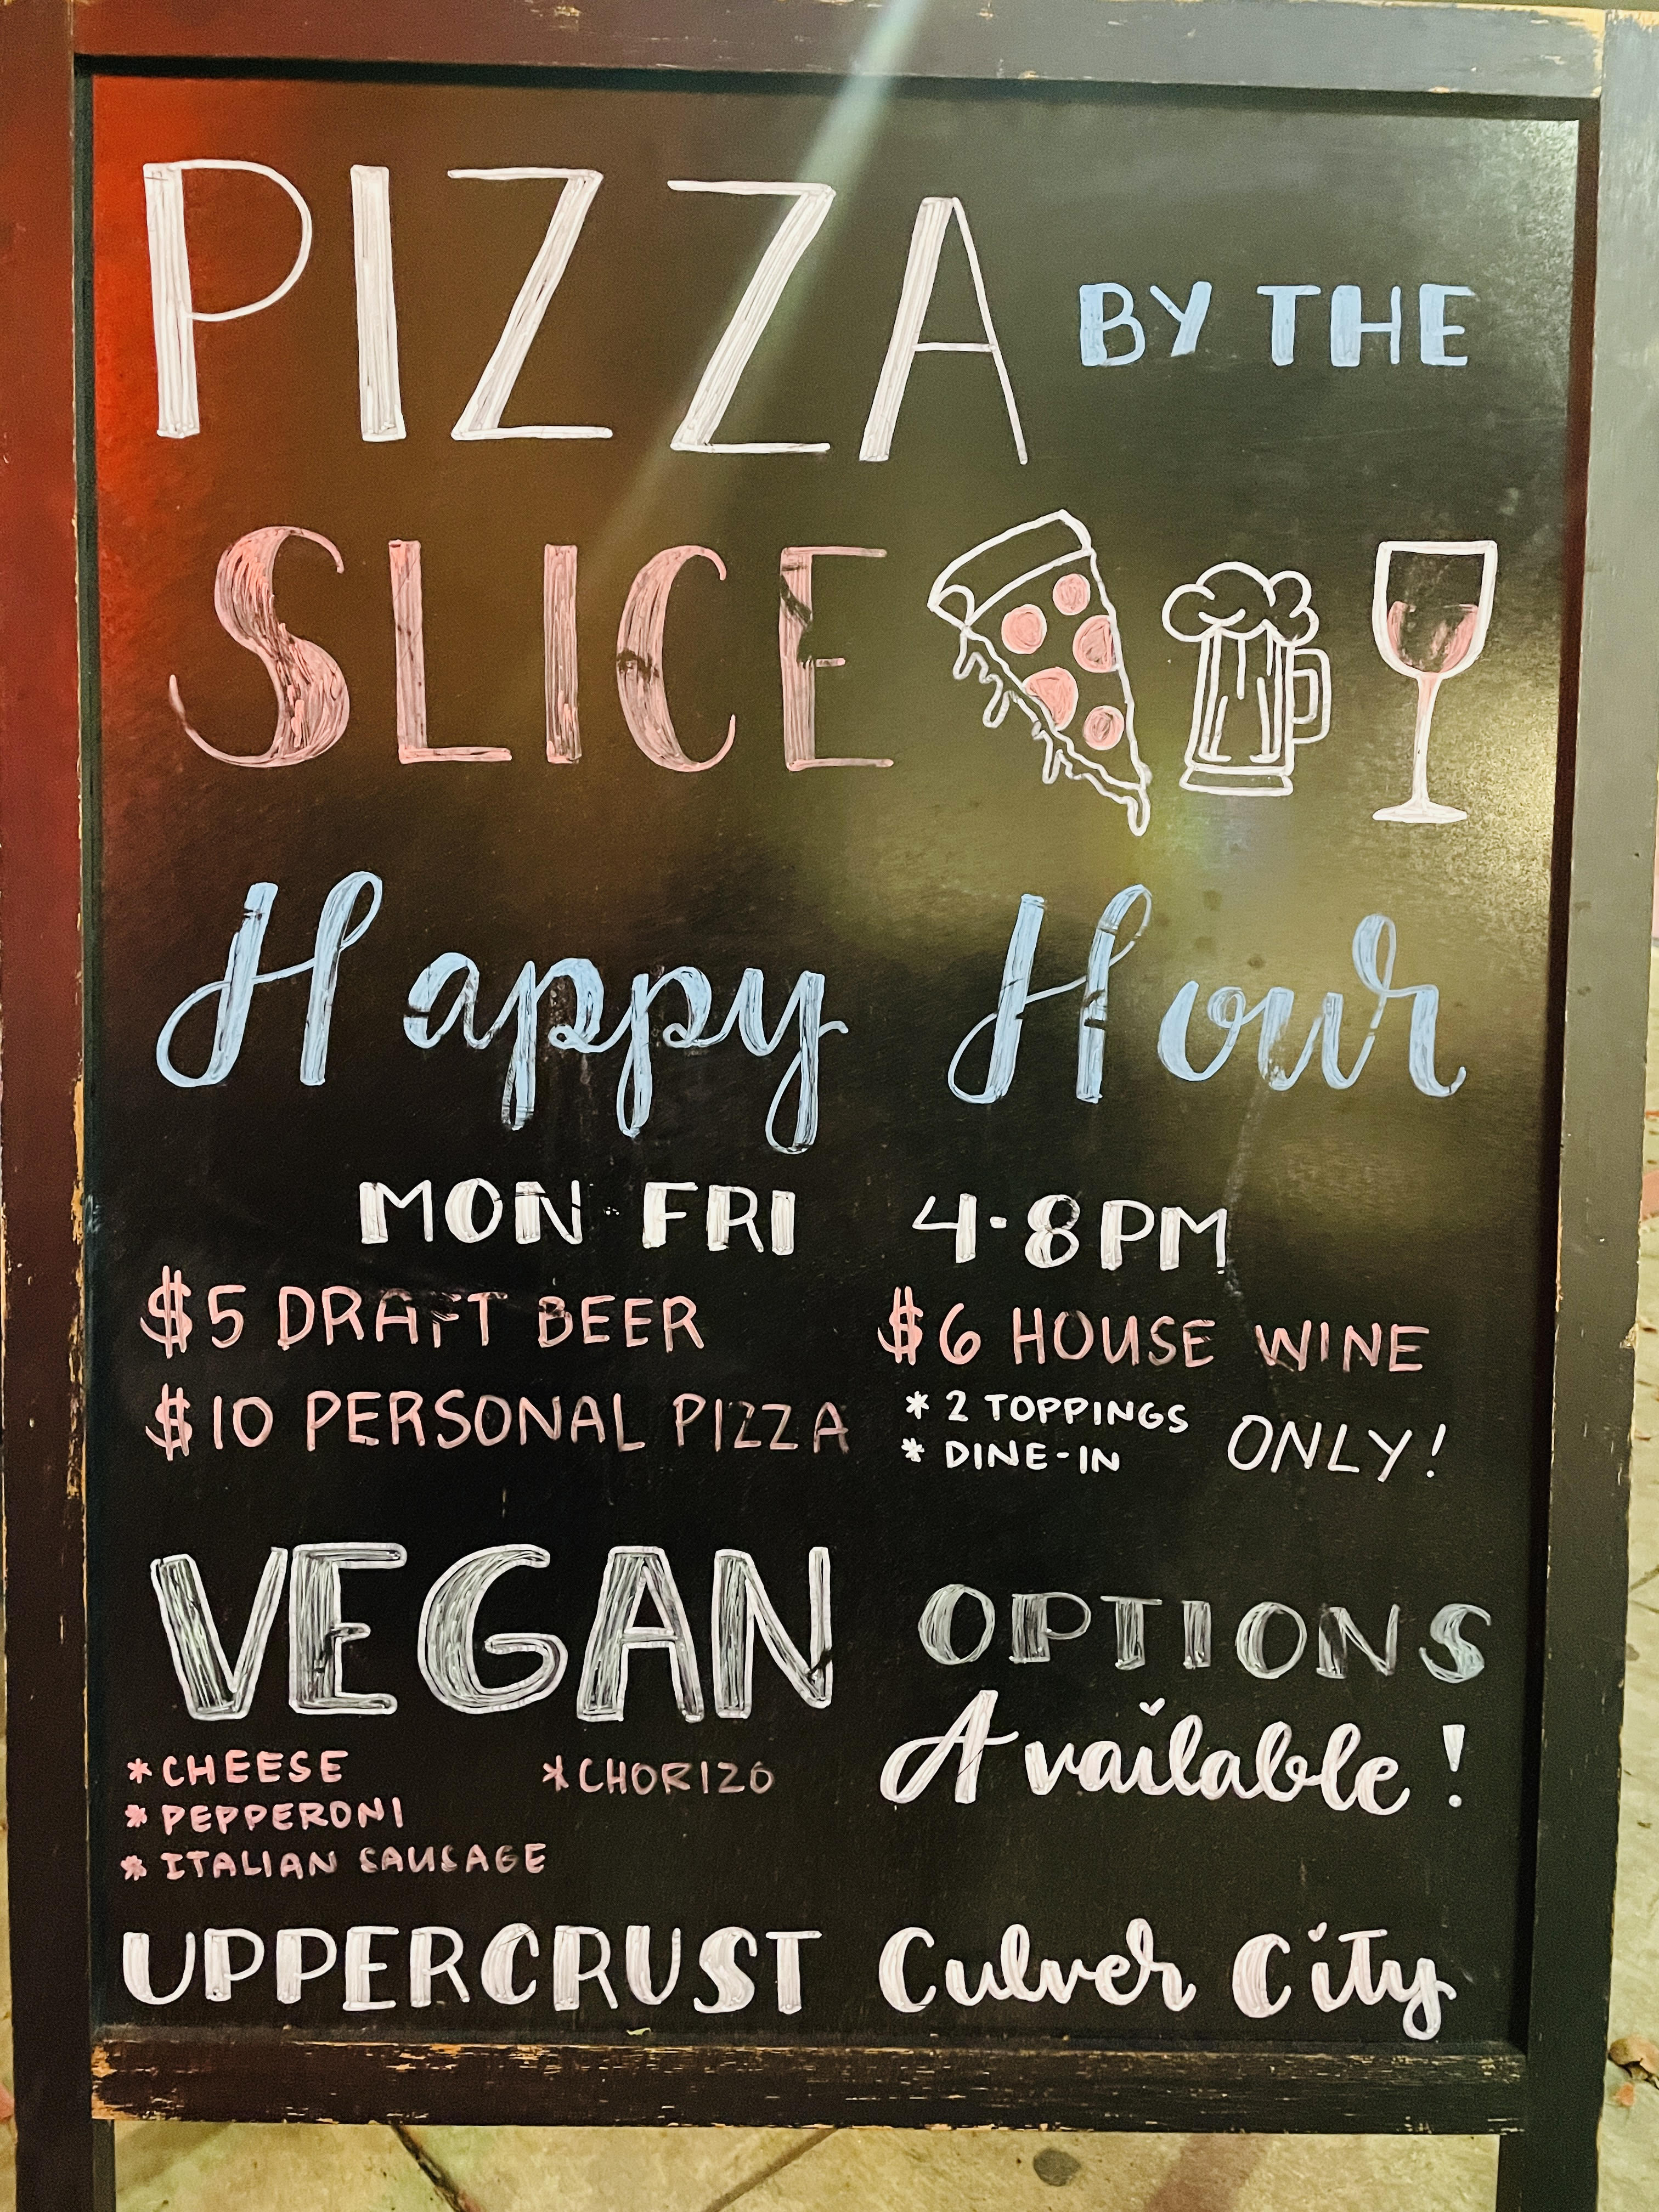 PIZZA BY THE
SLICE
Happy Hour
MON FRI 4-8PM
$5 DRAFT BEER $6 HOUSE WINE
$10 PERSONAL PIZZA * 2 TOPPINGS
* DINE-IN ONLY!
VEGAN OPTIONS
Available!
* CHEESE * CHORIZO
* PEPPERONI
* ITALIAN SAUSAGE
UPPERCRUST Culver City